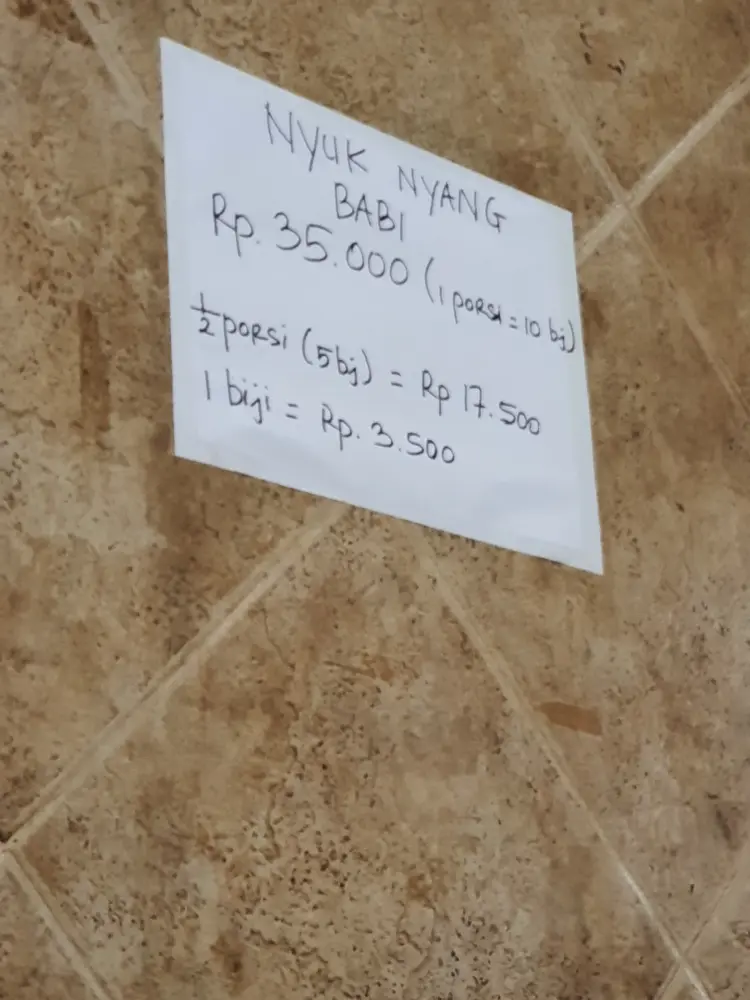 NYUK NYANG
BABI
Rp. 35.000 (1 porsi = 10 bj)
½ porsi (5 bj) = Rp 17.500
1 biji = Rp. 3.500